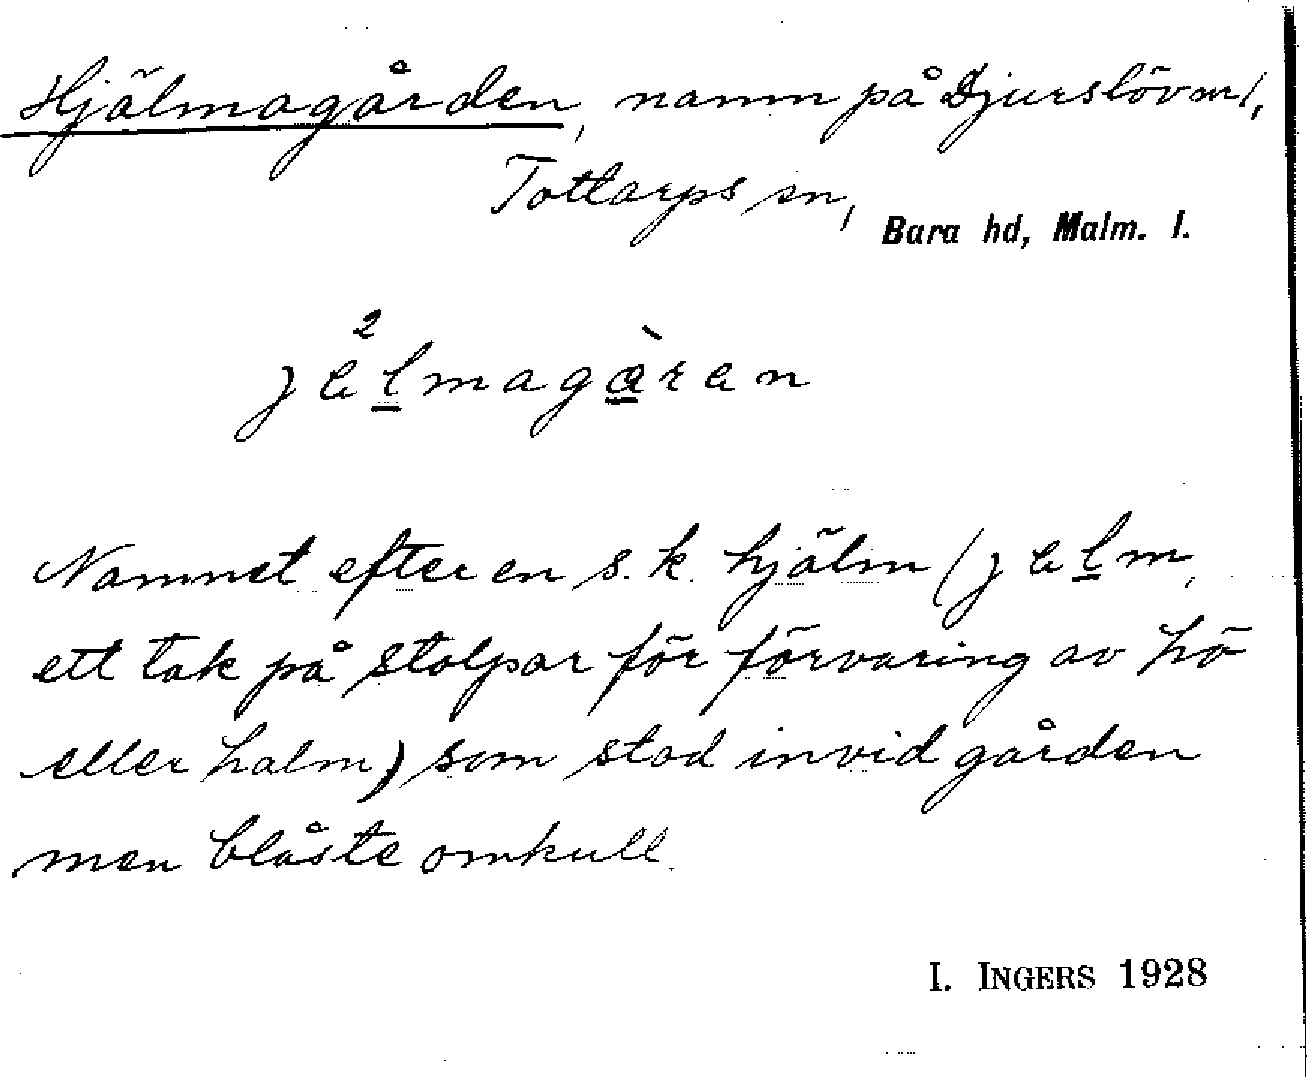 Hjälmagården, namn på Djurslöv nr 1,
Tottarps sn,
Bara hd, Malm. l.
jelmagaren
Namnet efter en s.k. hjälm (jelm,
ett tak på stolpar för förvaring av hö
eller halm) som stod invid gården
men blåste omkull.
I. INGERS 1928